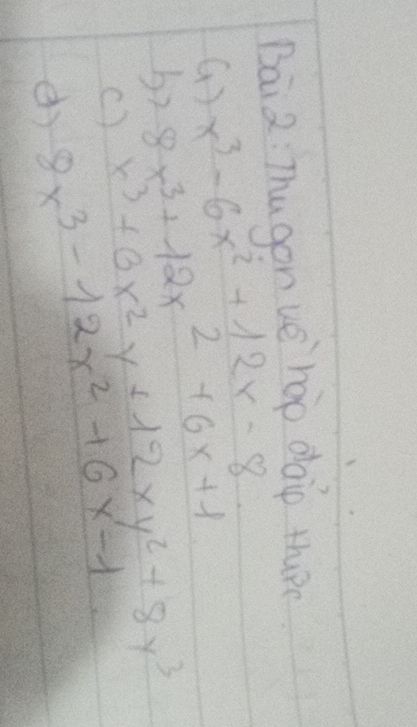 Bài 2: Thu gọn về hằng đẳng thức
a) x³ - 6x² + 12x - 8
b) 8x³ + 12x² + 6x + 1
c) x³ + 6x²y + 12xy² + 8y³
d) 8x³ - 12x² + 6x - 1